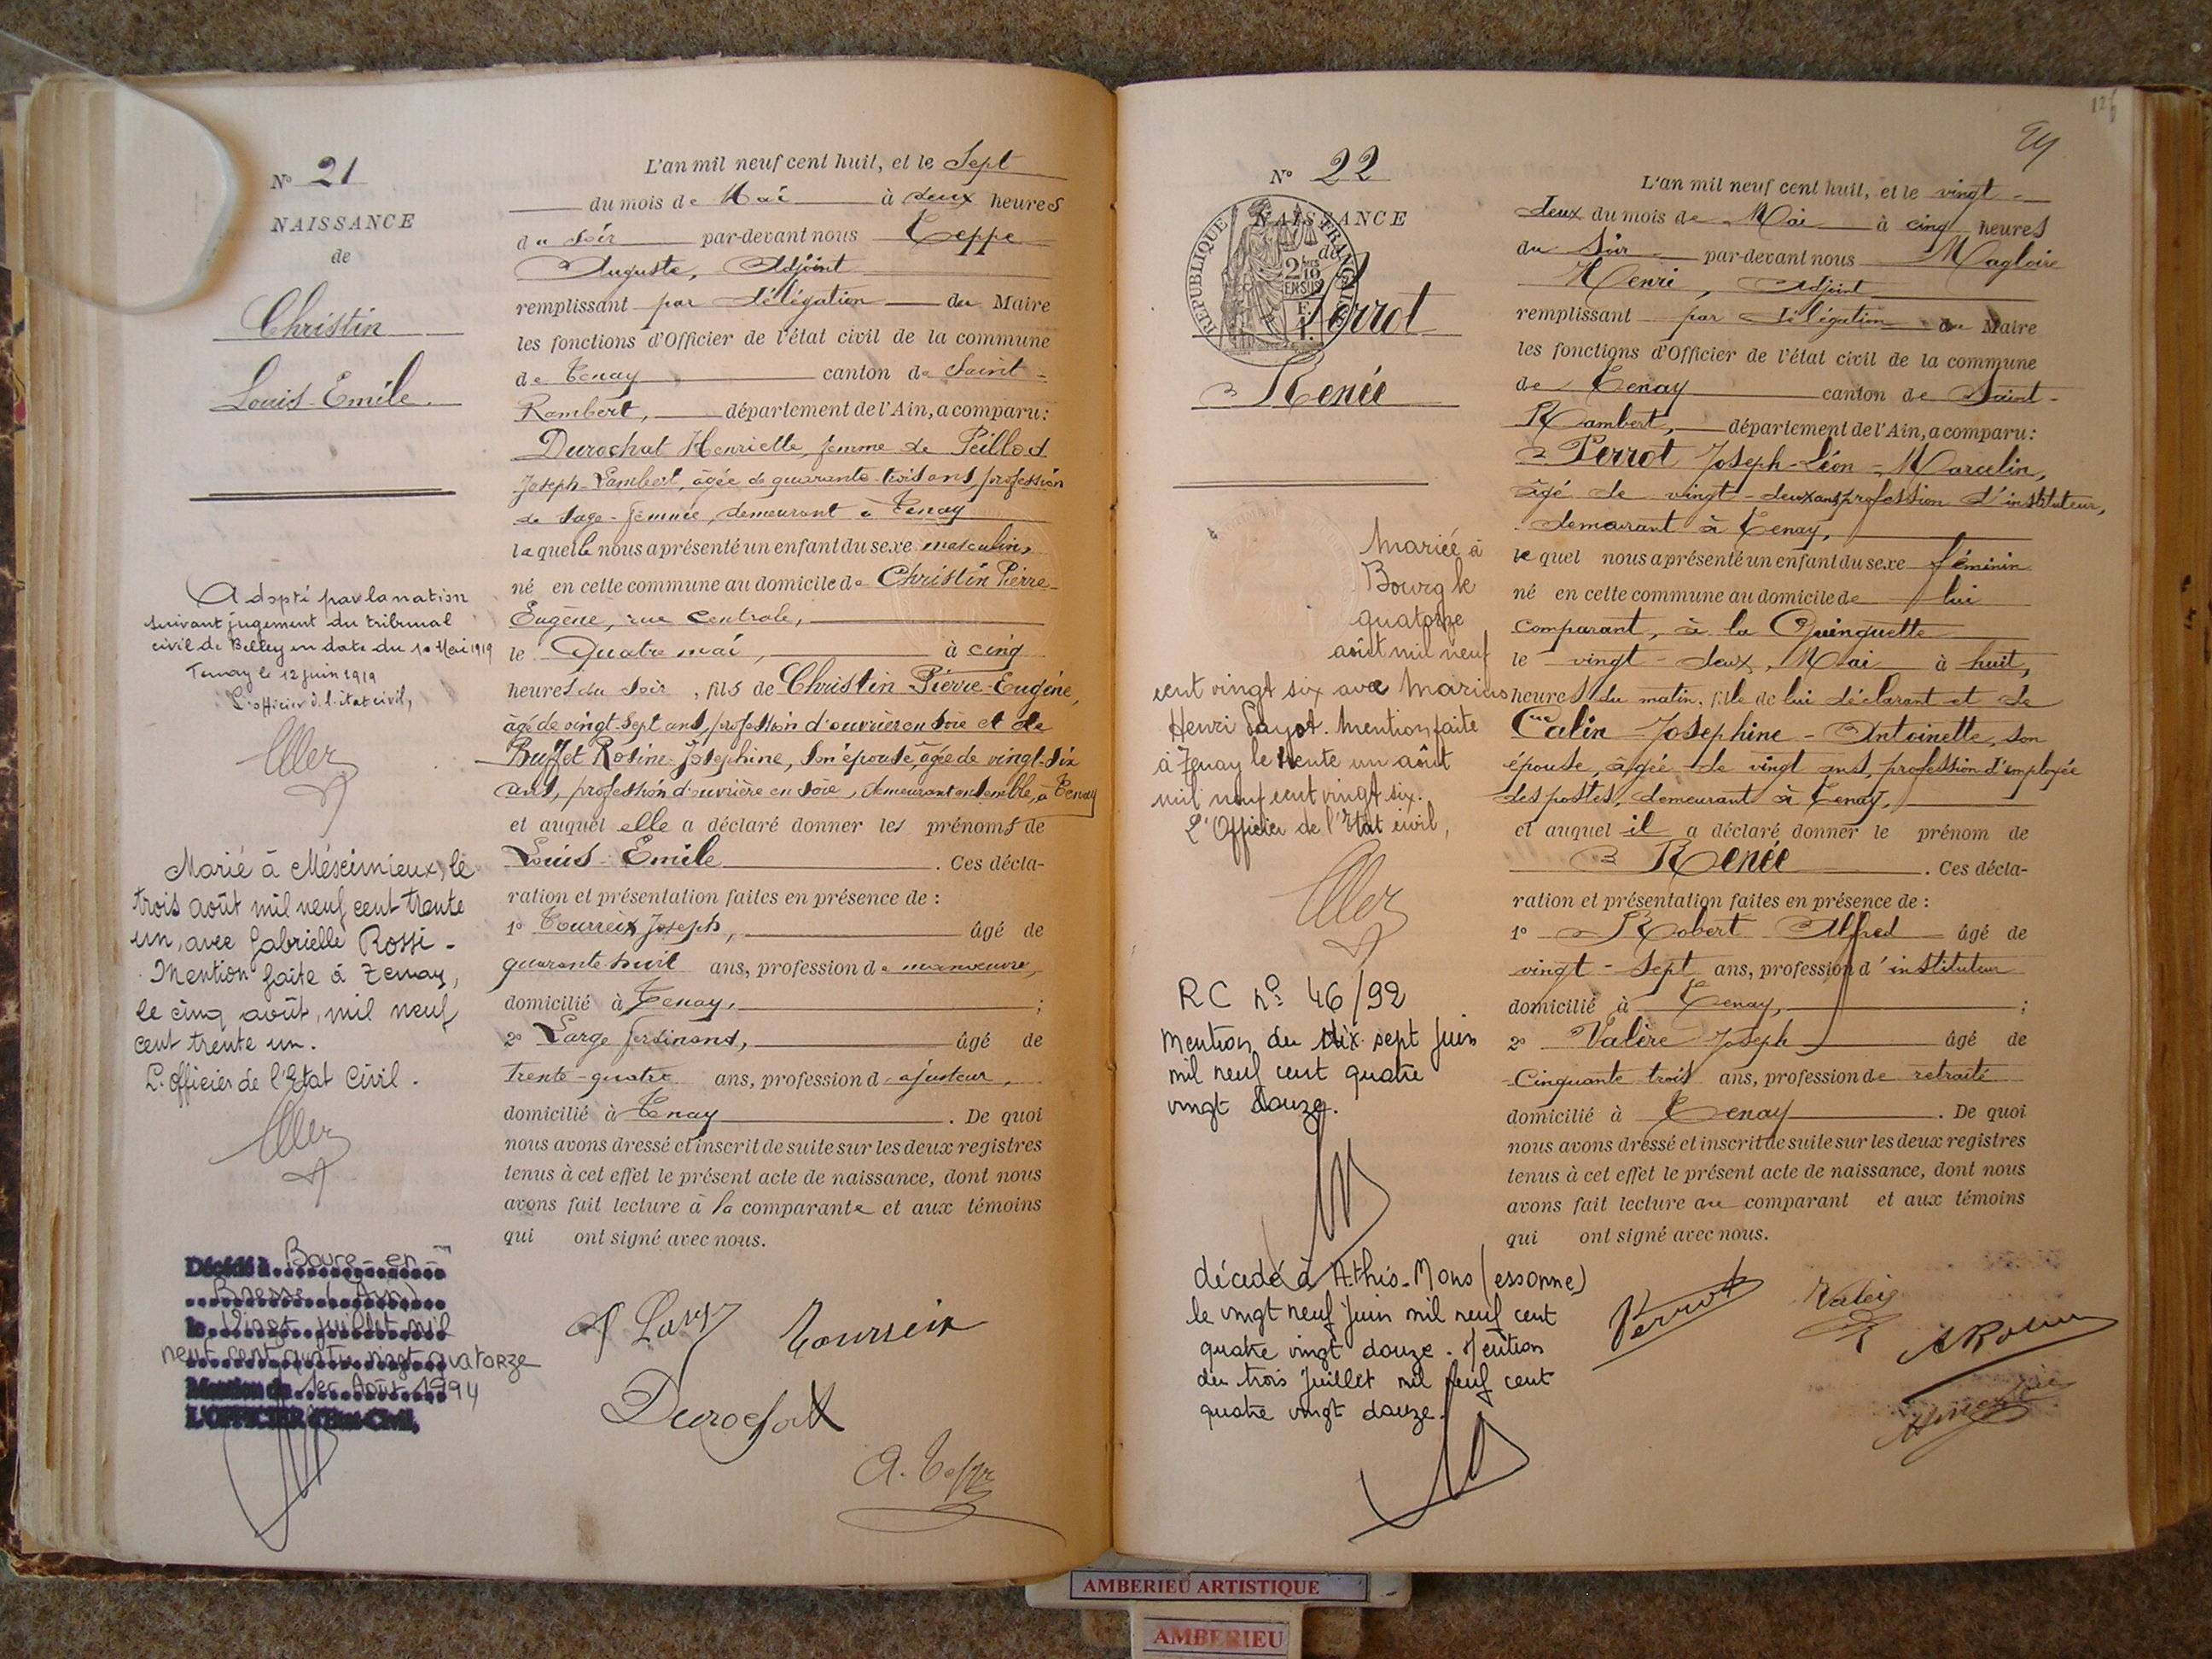 N° 21
NAISSANCE
de
Christin
Louis-Emile.
Adopté par la nation
suivant jugement du tribunal
civil de Belley en date du 10 Mai 1919
Tenay le 12 juin 1919
L'officier d. l. état civil,
Marié à Méximieux, le
trois août mil neuf cent trente
un, avec Gabrielle Rossi -
Mention faite à Tenay,
le cinq août, mil neuf
cent trente un.
L'officier de l'Etat Civil.
Décédé à Bourg-en-
Bresse (Ain)
le Vingt juillet mil
neuf cent quatre vingt quatorze
Mention du 1er Août 1994
L'OFFICIER d'Etat-Civil,
L'an mil neuf cent huit, et le Sept
du mois de Mai à deux heures
du soir par-devant nous Teppe
Auguste, Adjoint
remplissant par délégation du Maire
les fonctions d'Officier de l'état civil de la commune
de Tenay canton de Saint-
Rambert, département de l'Ain, a comparu:
Durochat Henriette, femme de Peillod
Joseph-Lambert, âgée de quarante-trois ans, profession
de sage-femme, demeurant à Tenay
laquelle nous a présenté un enfant du sexe masculin,
né en cette commune au domicile de Christin Pierre-
Eugène, rue Centrale,
le Quatre mai, à cinq
heures du soir, fils de Christin Pierre-Eugène,
âgé de vingt-sept ans, profession d'ouvrier en soie et de
Buffet Rosine-Josephine, son épouse, âgée de vingt-six
ans, profession d'ouvrière en soie, demeurant ensemble, à Tenay
et auquel elle a déclaré donner les prénoms de
Louis-Emile. Ces décla-
ration et présentation faites en présence de :
1° Tourreix Joseph, âgé de
quarante-huit ans, profession de manœuvre,
domicilié à Tenay, ;
2° Large Ferdinand, âgé de
trente-quatre ans, profession d'ajusteur,
domicilié à Tenay. De quoi
nous avons dressé et inscrit de suite sur les deux registres
tenus à cet effet le présent acte de naissance, dont nous
avons fait lecture à la comparante et aux témoins
qui ont signé avec nous.
Large Tourreix
Durochat
A. Teppe
N° 22
NAISSANCE
de
REPUBLIQUE FRANÇAISE
Perrot
Renée
Mariée à
Bourg le
quatorze
août mil neuf
cent vingt six avec Marius
Henri Payot. Mention faite
à Tenay le trente un août
mil neuf cent vingt six.
L'Officier de l'Etat civil,
RC n° 46/92
Mention du dix sept juin
mil neuf cent quatre
vingt douze.
décédé à Athis-Mons (essonne)
le vingt neuf juin mil neuf cent
quatre vingt douze. Mention
du trois Juillet mil neuf cent
quatre vingt douze.
L'an mil neuf cent huit, et le vingt-
deux du mois de Mai à cinq heures
du Soir par-devant nous Magloire
Henri, Adjoint
remplissant par délégation du Maire
les fonctions d'Officier de l'état civil de la commune
de Tenay canton de Saint-
Rambert, département de l'Ain, a comparu:
Perrot Joseph-Léon-Marcelin,
âgé de vingt-deux ans, profession d'instituteur,
demeurant à Tenay,
lequel nous a présenté un enfant du sexe féminin
né en cette commune au domicile de lui
comparant, à la Guinguette
le vingt-deux, Mai à huit,
heures du matin, fille de lui déclarant et de
Calin Josephine-Antoinette, son
épouse, âgée de vingt ans, profession d'employée
des postes, demeurant à Tenay,
et auquel il a déclaré donner le prénom de
Renée. Ces décla-
ration et présentation faites en présence de :
1° Robert Alfred âgé de
vingt-sept ans, profession d'instituteur
domicilié à Tenay, ;
2° Valère Joseph âgé de
Cinquante trois ans, profession de retraité
domicilié à Tenay. De quoi
nous avons dressé et inscrit de suite sur les deux registres
tenus à cet effet le présent acte de naissance, dont nous
avons fait lecture au comparant et aux témoins
qui ont signé avec nous.
Perrot
AMBERIEU ARTISTIQUE
AMBERIEU